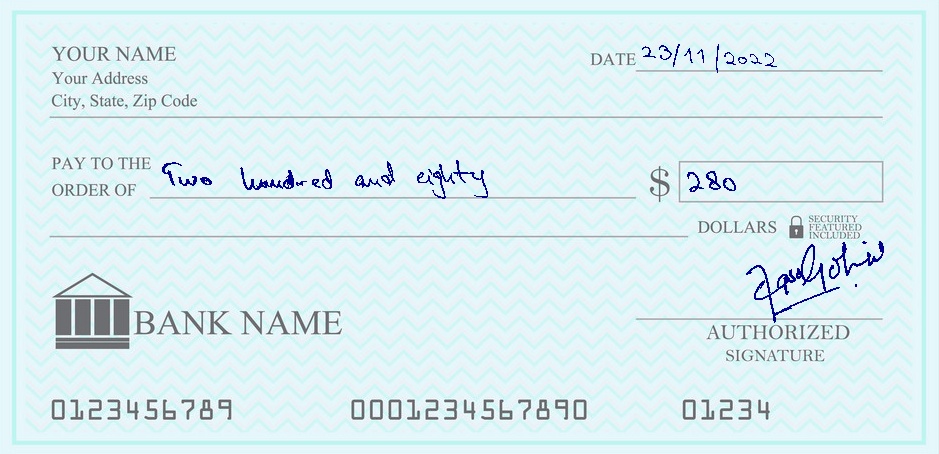 YOUR NAME
DATE 23/11/2022
Your Address
City, State, Zip Code
PAY TO THE
ORDER OF Two hundred and eighty $ 280
DOLLARS
SECURITY
FEATURED
INCLUDED
BANK NAME
AUTHORIZED
SIGNATURE
0123456789 0001234567890 01234